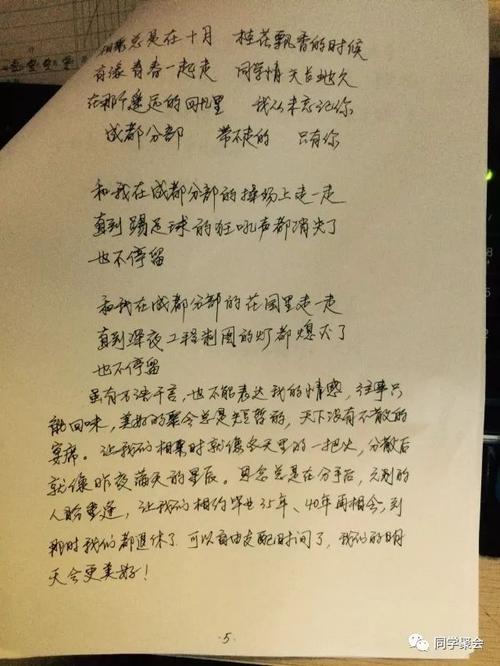 总是在十月 桂花飘香的时候
有缘青春一起走 同学情天长地久
在那个遥远的回忆里 我从来忘记你
成都分部 带不走的 只有你
和我在成都分部的操场上走一走
直到踢足球的狂吼声都消失了
也不停留
和我在成都分部的花园里走一走
直到深夜工程制图的灯都熄灭了
也不停留
虽有万语千言,也不能表达我的情感,往事只
能回味,美好的聚会总是短暂的,天下没有不散的
宴席。让我们相聚时就像冬天里的一把火,分散后
就像昨夜满天的星辰。思念总是在分手后,久别的
人盼重逢,让我们相约毕业35年、40年再相会,到
那时我们都退休了可以自由支配时间了,我们的明
天会更美好!
·5·
同学聚会